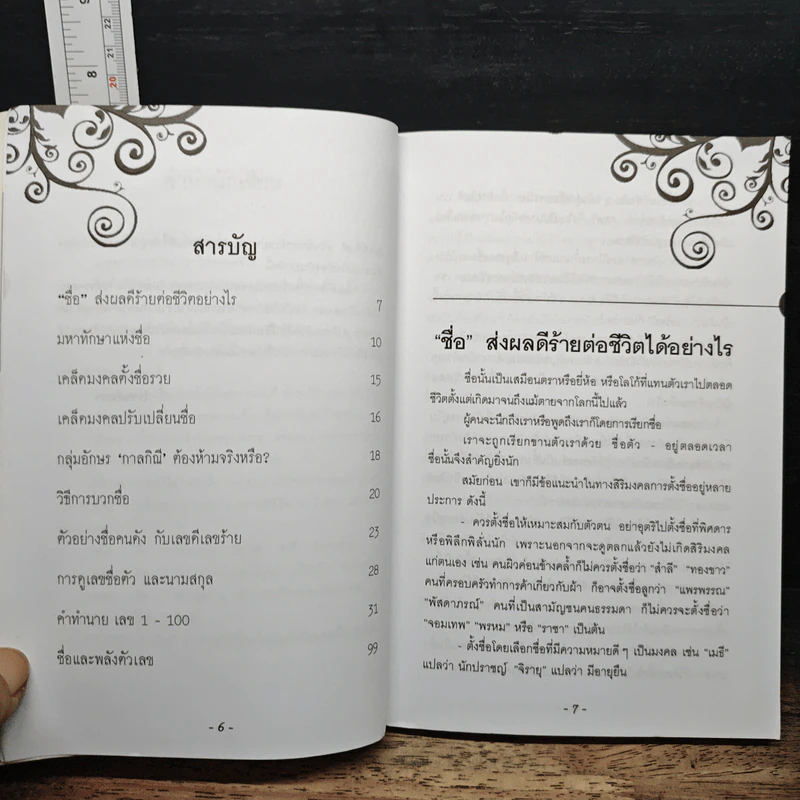 9
22
21
8
20
สารบัญ
“ชื่อ” ส่งผลดีร้ายต่อชีวิตอย่างไร 7
มหาทักษาแห่งชื่อ 10
เคล็ดมงคลตั้งชื่อรวย 15
เคล็ดมงคลปรับเปลี่ยนชื่อ 16
กลุ่มอักษร ‘กาลกิณี’ ต้องห้ามจริงหรือ? 18
วิธีการบวกชื่อ 20
ตัวอย่างชื่อคนดัง กับเลขดีเลขร้าย 23
การดูเลขชื่อตัว และนามสกุล 28
คำทำนาย เลข 1 - 100 31
ชื่อและพลังตัวเลข 99
- 6 -
“ชื่อ” ส่งผลดีร้ายต่อชีวิตได้อย่างไร
ชื่อนั้นเป็นเสมือนตราหรือยี่ห้อ หรือโลโก้ที่แทนตัวเราไปตลอด
ชีวิตตั้งแต่เกิดมาจนถึงแม้ตายจากโลกนี้ไปแล้ว
ผู้คนจะนึกถึงเราหรือพูดถึงเราก็โดยการเรียกชื่อ
เราจะถูกเรียกขานตัวเราด้วย ชื่อตัว - อยู่ตลอดเวลา
ชื่อนั้นจึงสำคัญยิ่งนัก
สมัยก่อน เขาก็มีข้อแนะนำในทางสิริมงคลการตั้งชื่ออยู่หลาย
ประการ ดังนี้
- ควรตั้งชื่อให้เหมาะสมกับตัวตน อย่าอุตริไปตั้งชื่อที่พิศดาร
หรือพิลึกพิลั่นนัก เพราะนอกจากจะดูตลกแล้วยังไม่เกิดสิริมงคล
แก่ตนเอง เช่น คนผิวค่อนข้างคล้ำก็ไม่ควรตั้งชื่อว่า “สำลี” “ทองขาว”
คนที่ครอบครัวทำการค้าเกี่ยวกับผ้า ก็อาจตั้งชื่อลูกว่า “แพรพรรณ”
“พัสดาภรณ์” คนที่เป็นสามัญชนคนธรรมดา ก็ไม่ควรจะตั้งชื่อว่า
“จอมเทพ” “พรหม” หรือ “ราชา” เป็นต้น
- ตั้งชื่อโดยเลือกชื่อที่มีความหมายดี ๆ เป็นมงคล เช่น “เมธี”
แปลว่า นักปราชญ์ “จิรายุ” แปลว่า มีอายุยืน
- 7 -